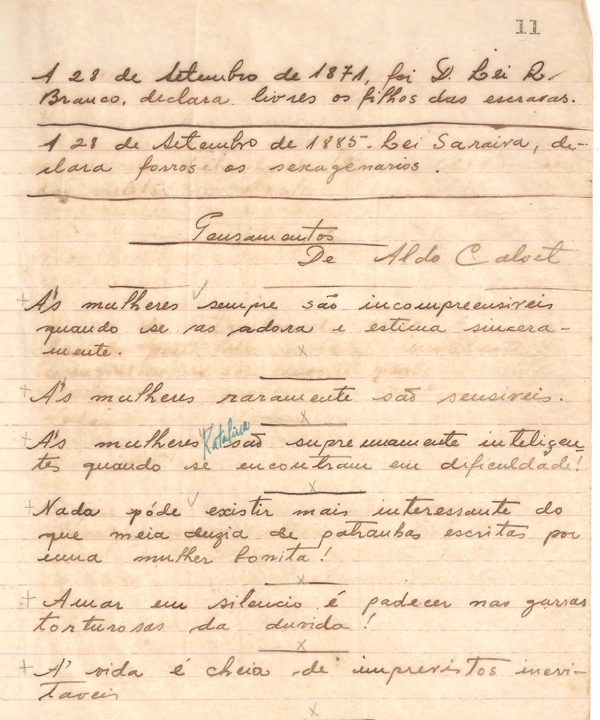 11
A 28 de Setembro de 1871, foi D. Lei R.
Branco, declara livres os filhos das escravas.
A 28 de Setembro de 1885 - Lei Saraiva, de-
clara forros os sexagenarios.
Pensamentos
De Aldo Calvet
+ A's mulheres sempre são incompreensiveis
quando se as adora e estima sincera-
mente.
x
+ A's mulheres raramente são sensiveis.
x
Katalina
+ A's mulheres são supremamente inteligen-
tes quando se encontram em dificuldade!
x
+ Nada póde existir mais interessante do
que meia duzia de patranhas escritas por
uma mulher bonita!
x
+ Amar em silencio é padecer nas garras
torturosas da duvida!
x
+ A' vida é cheia de imprevistos inevi-
taveis
x